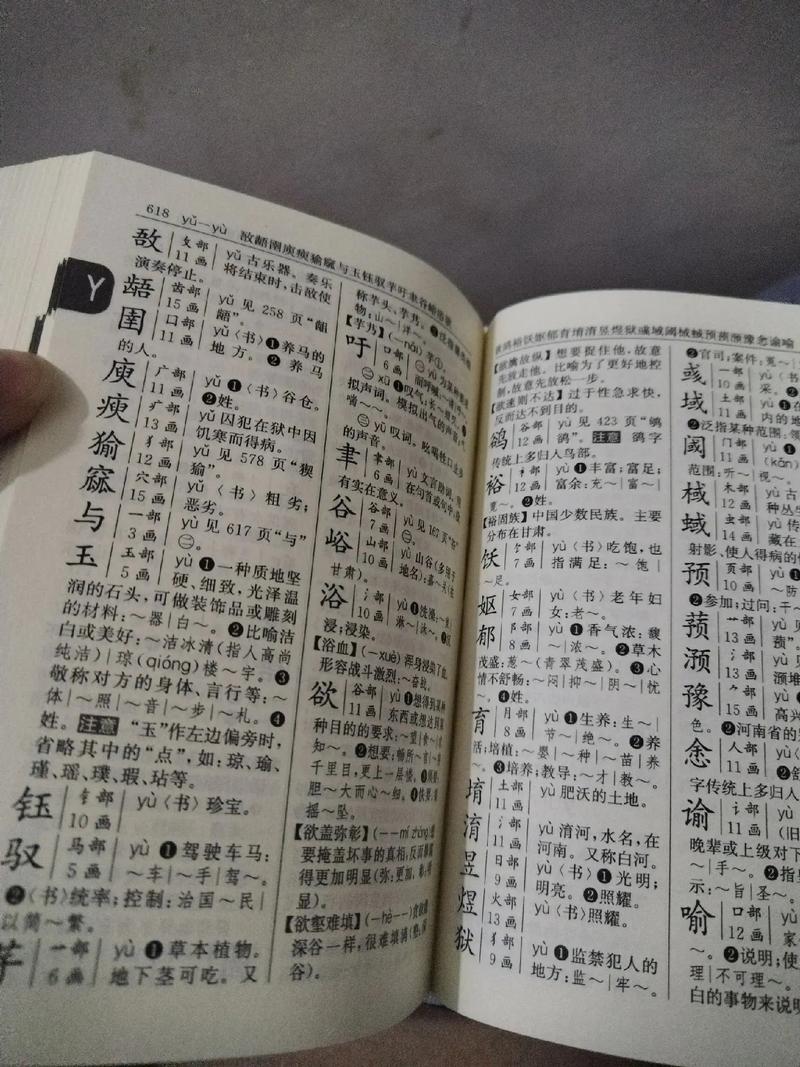 618 yǔ—yù 敔龉圉庾瘐㺄窳与玉钰驭芋吁聿谷峪浴欲
Y
敔 攵部 11画 yǔ 古乐器。奏乐
将结束时，击敔使
演奏停止。
龉 齿部 15画 yǔ 见 258 页“龃
龉”。
圉 口部 11画 yǔ〈书〉❶养马的
地方。❷养马
的人。
庾 广部 11画 yǔ ❶〈书〉谷仓。
❷姓。
瘐 疒部 13画 yǔ 囚犯在狱中因
饥寒而得病。
㺄 犭部 12画 yǔ 见 578 页“猰
㺄”。
窳 穴部 15画 yǔ〈书〉粗劣；
恶劣。
与 一部 3画 yù 见 617 页“与”
㊁。
玉 玉部 5画 yù ❶一种质地坚
硬、细致，光泽温
润的石头，可做装饰品或雕刻
的材料：～器｜白～。❷比喻洁
白或美好：～洁冰清（指人高尚
纯洁）｜琼(qióng)楼～宇。❸
敬称对方的身体、言行等：～
体｜～照｜～音｜～步｜～札。❹
姓。注意 “玉”作左边偏旁时，
省略其中的“点”，如：琼、瑜、
瑾、瑶、璞、瑕、玷等。
钰 钅部 10画 yù〈书〉珍宝。
驭 马部 5画 yù ❶驾驶车马：
～车｜～手｜驾～。
❷〈书〉统率；控制：治国～民｜
以简～繁。
芋 艹部 6画 yù ❶草本植物。
地下茎可吃。又
称芋头、芋艿。
物：山～｜洋～。
【芋艿】(—nǎi) 芋①。
吁 口部 6画 ㊀ yù 为某种要求
而呼喊：
㊁ xū ❶叹气：长～短～。
拟声词。模拟出气的声音：气
喘～～。
㊂ yū 叹词。吆喝牲口止步
的声音。
聿 聿部 6画 yù 文言助词。用
在句首或句中，没
有实在意义。
谷 谷部 7画 yù 见 167 页“谷”
㊁。
峪 山部 10画 yù 山谷（多用于
地名）：嘉～关（在
甘肃）。
浴 氵部 10画 yù ❶洗澡：～室｜
淋～｜沐～。
浸；浸染。
【浴血】(—xuè) 浑身浸染了血。
形容战斗激烈：～奋战。
欲 谷部 11画 yù ❶想得到某种
东西或想达到某
种目的的要求：～望｜食～｜求
知～。❷想要；畅所～言｜～穷
千里目，更上一层楼。❸需要：
胆～大而心～细。❹快要：
摇～坠。
【欲盖弥彰】(——mí zhāng) 想
要掩盖坏事的真相，反而暴露
得更加明显（弥：更加。彰：明
显）。
【欲壑难填】(—hè——) 贪欲像
深谷一样，很难填满（壑：深
谷）。
鹆裕饫妪郁育堉淯昱煜狱彧域阈棫蜮预蓣滪豫悆谕喻
【欲擒故纵】想要捉住他，故意
先放走他。比喻为了更好地控
制，故意先放松一步。
【欲速则不达】过于性急求快，
反而达不到目的。
鹆 谷部 12画 yù 见 423 页“鸲
鹆”。注意 鹆字
传统上多归入鸟部。
裕 衤部 12画 yù ❶丰富；富足；
富余：充～｜富～｜
宽～。❷姓。
【裕固族】中国少数民族。主要
分布在甘肃。
饫 饣部 7画 yù〈书〉吃饱，也
指满足：～饱｜
～足。
妪 女部 7画 yù〈书〉老年妇
女：老～。
郁 阝部 8画 yù ❶香气浓：馥
～｜浓～。❷草木
茂盛：葱～（青翠茂盛）。❸心
情不舒畅：～闷｜抑～｜阴～｜忧
～。❹姓。
育 月部 8画 yù ❶生养：生～｜
节～｜绝～。❷养
活；培植：～婴｜～种｜～苗｜养
～。❸培养；教导：～才｜教～。
堉 土部 11画 yù 肥沃的土地。
淯 氵部 11画 yù 淯河，水名，在
河南。又称白河。
昱 日部 9画 yù〈书〉❶光明；
明亮。❷照耀。
煜 火部 13画 yù〈书〉照耀。
狱 犭部 9画 yù ❶监禁犯人的
地方：监～｜牢～。
❷官司；案件：冤～｜
彧 一部 10画 yù〈书〉
采。❷
域 土部 11画 yù ❶
内的地
❷泛指某种范围：领
阈 门部 11画 yù
(kǎn)
范围：听～｜视～。
棫 木部 12画 yù 古
种丛生
蜮 虫部 14画 yù 传
藏在
射影、使人得病的
预 页部 10画 yù ❶
～防
❷参加；过问：干～
蓣 艹部 13画 yù 见
蓣”。
滪 氵部 13画 yù
滪堆
豫 ⺈部 15画 yù ❶
高兴
色。❷河南省的
悆 人部 11画 yù
❷舒
字传统上多归入
谕 讠部 11画 yù ❶
（旧
晚辈或上级对下
～｜手～。❷指
示：～旨｜圣～。
喻 口部 12画 yù ❶
家
❷说明；使
理｜不可理～。
白的事物来说明